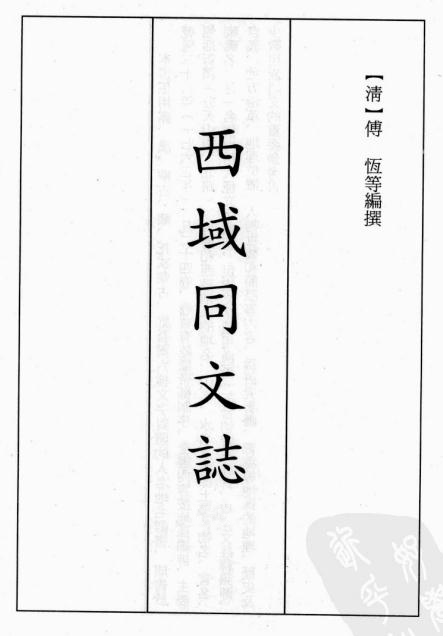 【清】傅　恆等編撰
西域同文誌